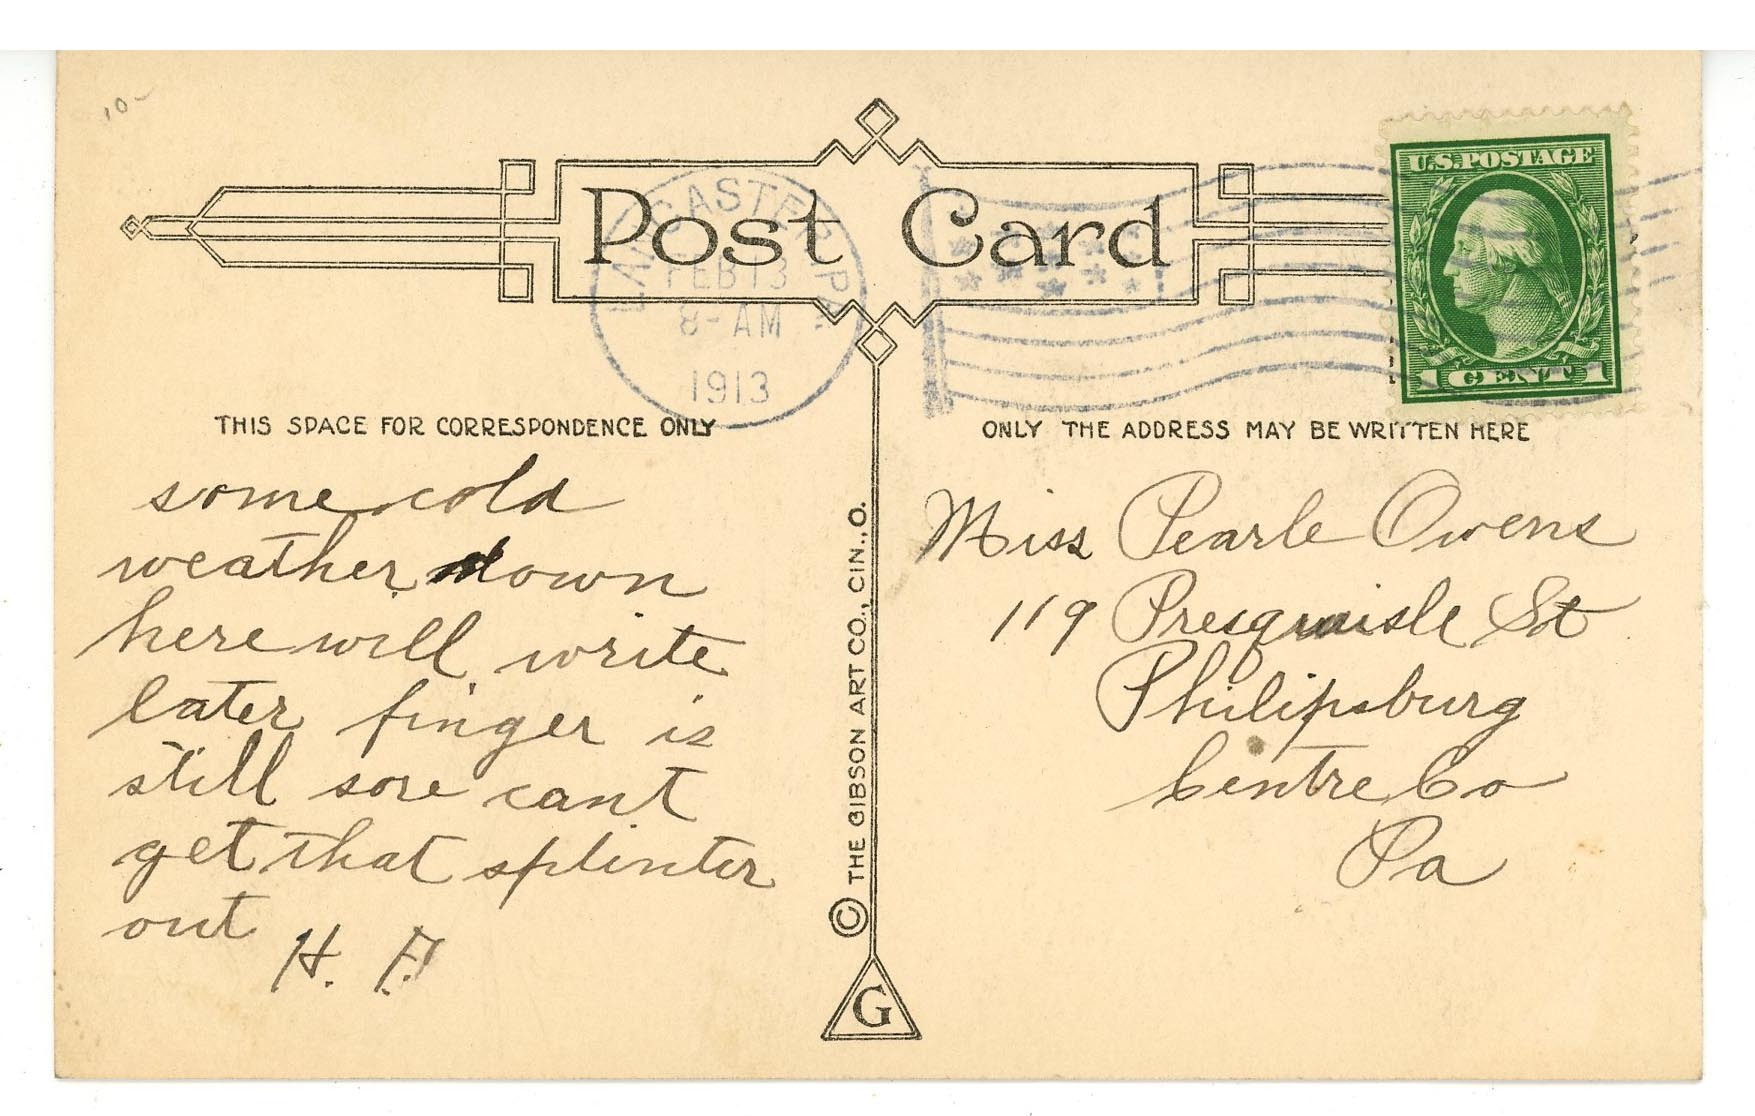 10-
Post Card
LANCASTER PA
FEB 13
8-AM
1913
U.S. POSTAGE
1 CENT 1
THIS SPACE FOR CORRESPONDENCE ONLY
ONLY THE ADDRESS MAY BE WRITTEN HERE
some cold
weather down
here will write
later finger is
still sore cant
get that splinter
out
H. F.
© THE GIBSON ART CO., CIN., O.
G
Miss Pearle Owens
119 Presquisle St
Philipsburg
Centre Co
Pa